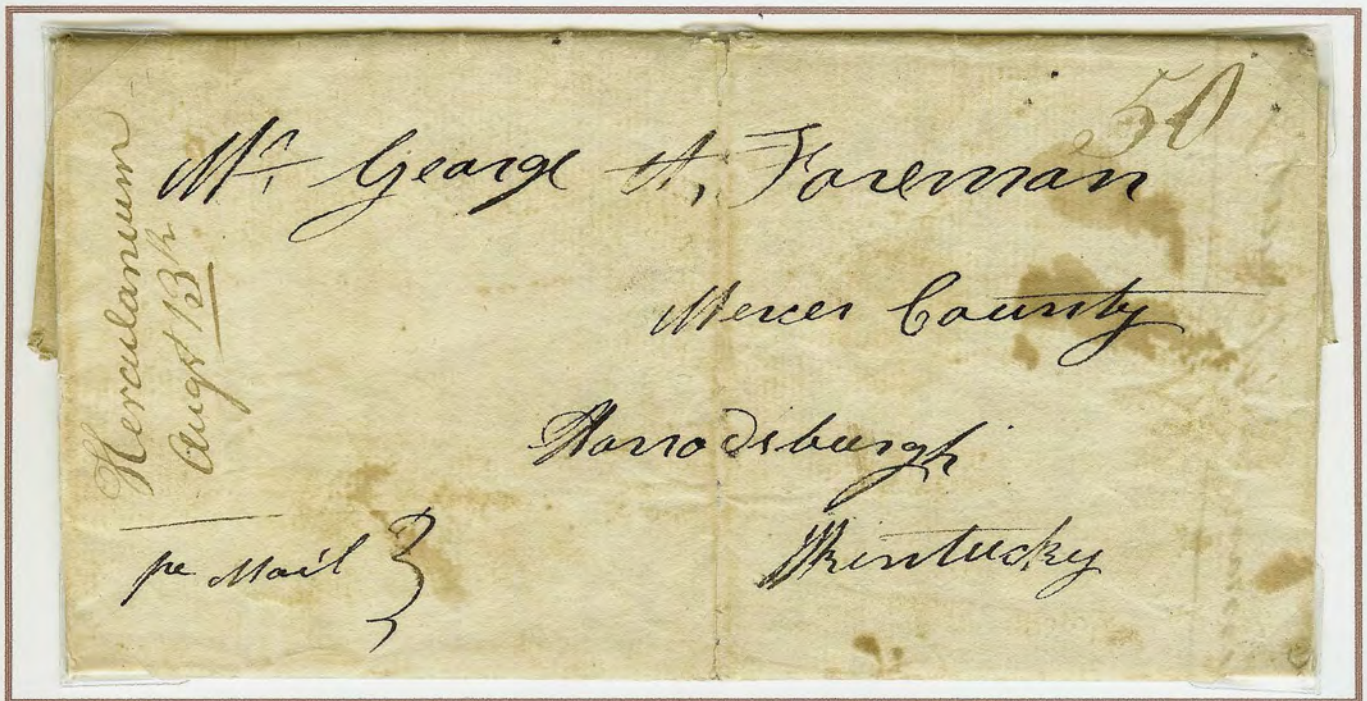 Herculaneum
Augst 13th
50
Mr. George A, Foreman
Mercer County
Harrodsburgh
Kentucky
pr Mail